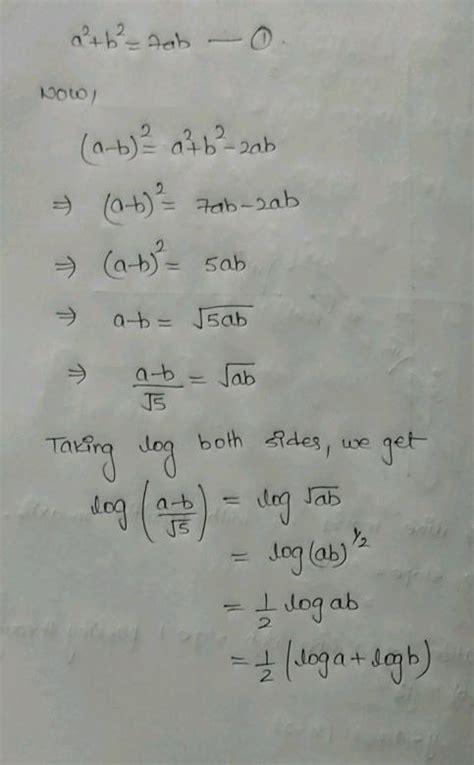 a²+b²=7ab — ①.
Now,
(a-b)²= a²+b²-2ab
⇒ (a-b)²= 7ab-2ab
⇒ (a-b)²= 5ab
⇒ a-b = √5ab
⇒ a-b/√5 = √ab
Taking log both sides, we get
log(a-b/√5) = log √ab
= log(ab)^1/2
= 1/2 log ab
= 1/2 (log a + log b)